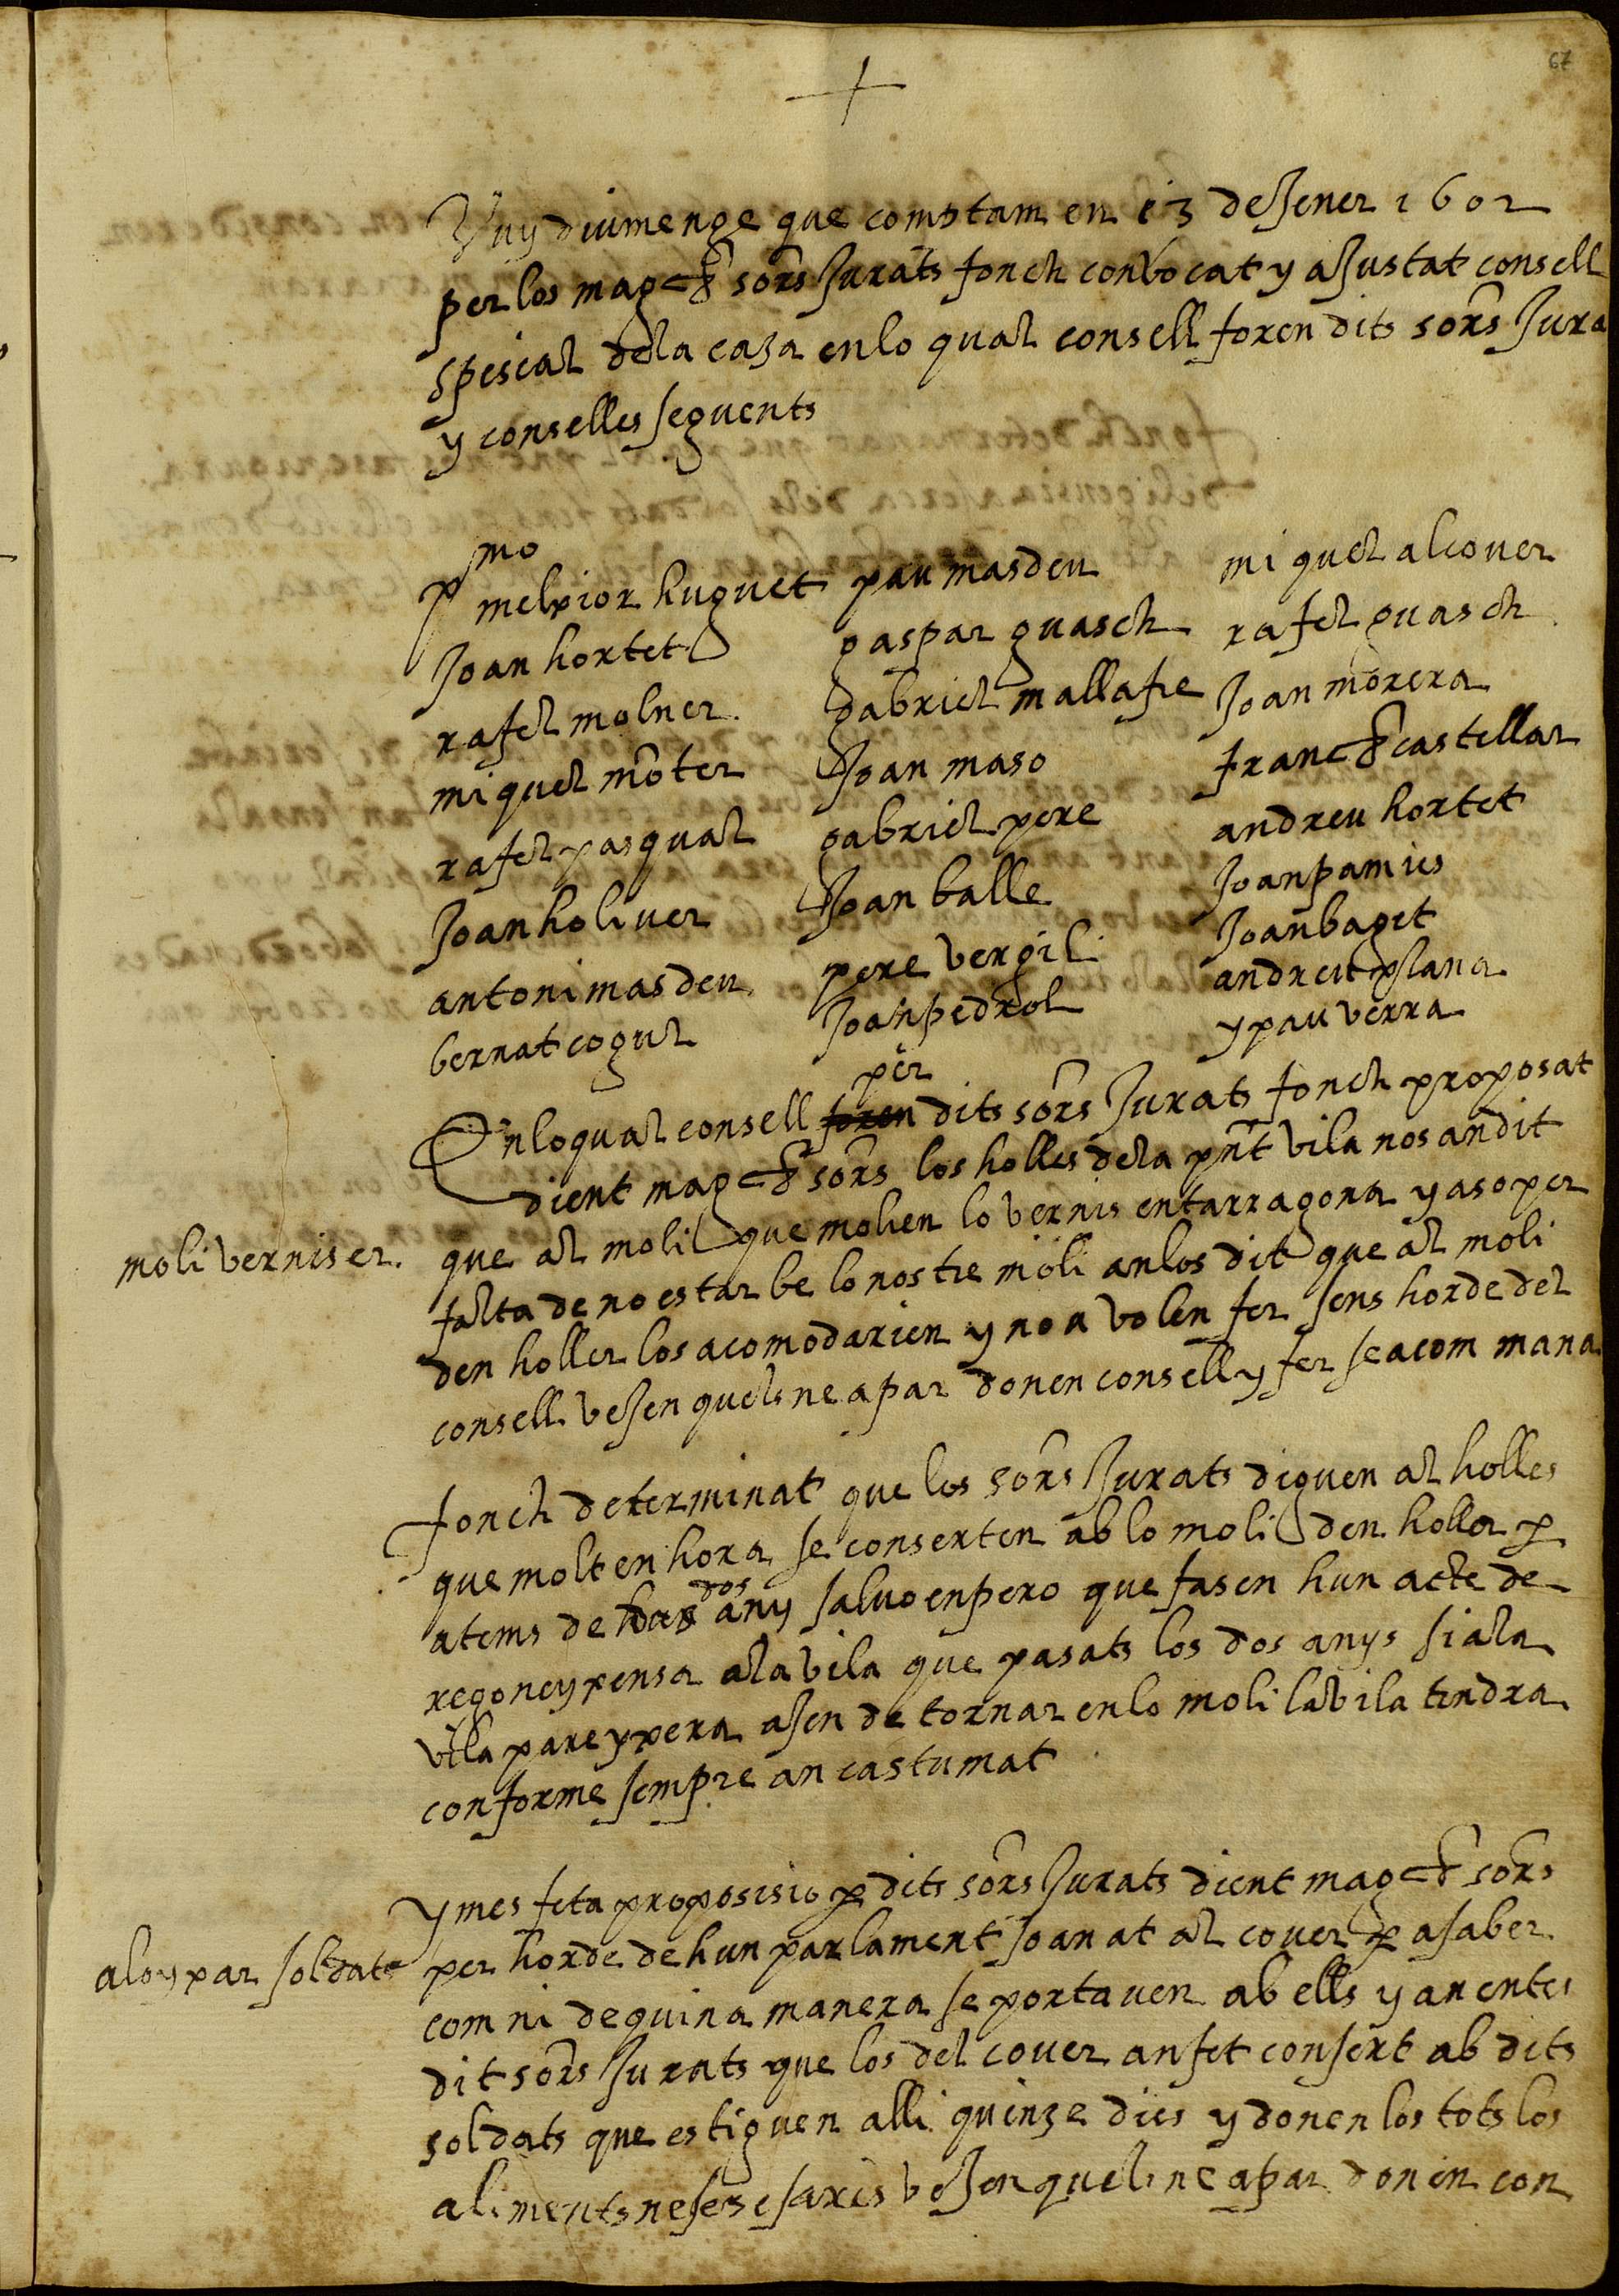 67
Vuy diumenge que comptam en 13 de Jener 1602
per los magchs sors Jurats fonch convocat y aJustat consell
spesial dela caza en lo qual consell foren dits sors Jura
y conselles seguents
pmo
melxior huguet
Joan hortet
rafel molner
miquel moter
rafel pasqual
Joan holiver
antoni masdeu
bernat cogul
pau masdeu
gaspar guasch
gabriel mallafre
Joan maso
gabriel pere
Joan balle
pere vergili
Joan pedrol
miquel alcover
rafel guasch
Joan morera
franch castellar
andreu hortet
Joan pamies
Joan baget
andreu plana
y pau verra
per
En lo qual consell foren dits sors Jurats fonch proposat
dient magchs sors los holles dela pnt vila nos an dit
moli verniser.
que al moli que molien lo vernis en tarragona y aso per
falta de no estar be lo nostre moli an los dit que al moli
den holler los acomodarien y no a volen fer sens horde del
consell veJen quels ne apar donen consell y fer se a com mana
fonch determinat que los sors Jurats diguen al holles
que molt en hora se conserten ab lo moli den holler p
dos
atems de any salvo enpero que fasen hun acte de
regoneyxensa ala vila que pasats los dos anys si ala
vila pareyxera aJen de tornar en lo moli la vila tindra
conforme sempre an castumat
y mes feta proposisio p dits sors Jurats dient magch sors
aloyxar soldats
per horde de hun parlament Joan at al cover p a saber
com ni de quina manera se portaven ab ells y an entes
dit sors Jurats que los del cover an fet consert ab dits
soldats que estiguen alli quinze dies y donen los tots los
aliments nesesesaris veJen quels ne apar donen con